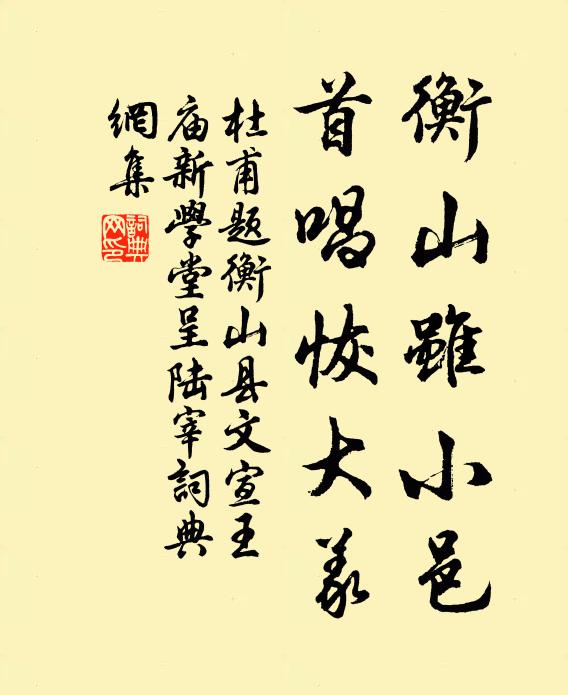 衡山雖小邑
首唱恢大義
杜甫题衡山县文宣王
庙新學堂呈陆宰詞典
網集
詞典
网印